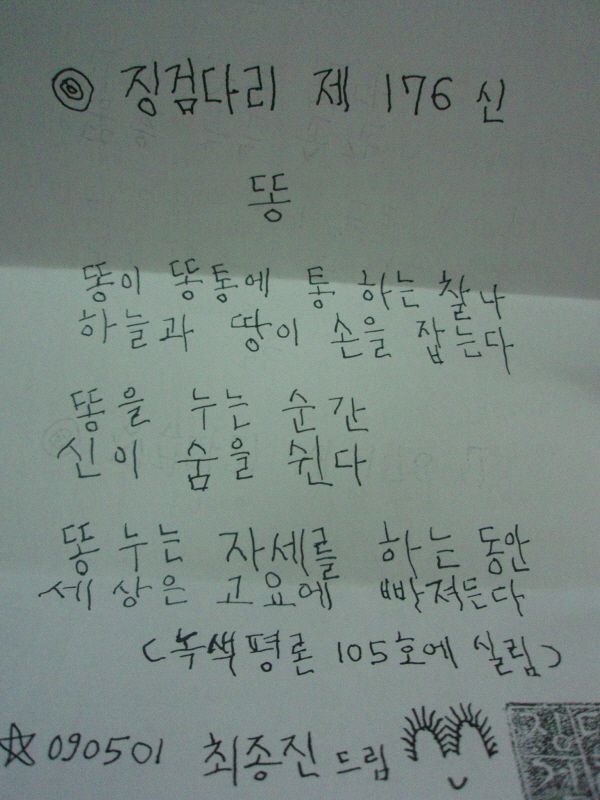 징검다리 제 176 신
똥
똥이 똥통에 통 하는 찰나
하늘과 땅이 손을 잡는다
똥을 누는 순간
신이 숨을 쉰다
똥 누는 자세를 하는 동안
세상은 고요에 빠져든다
(녹색평론 105호에 실림)
☆090501 최종진 드림